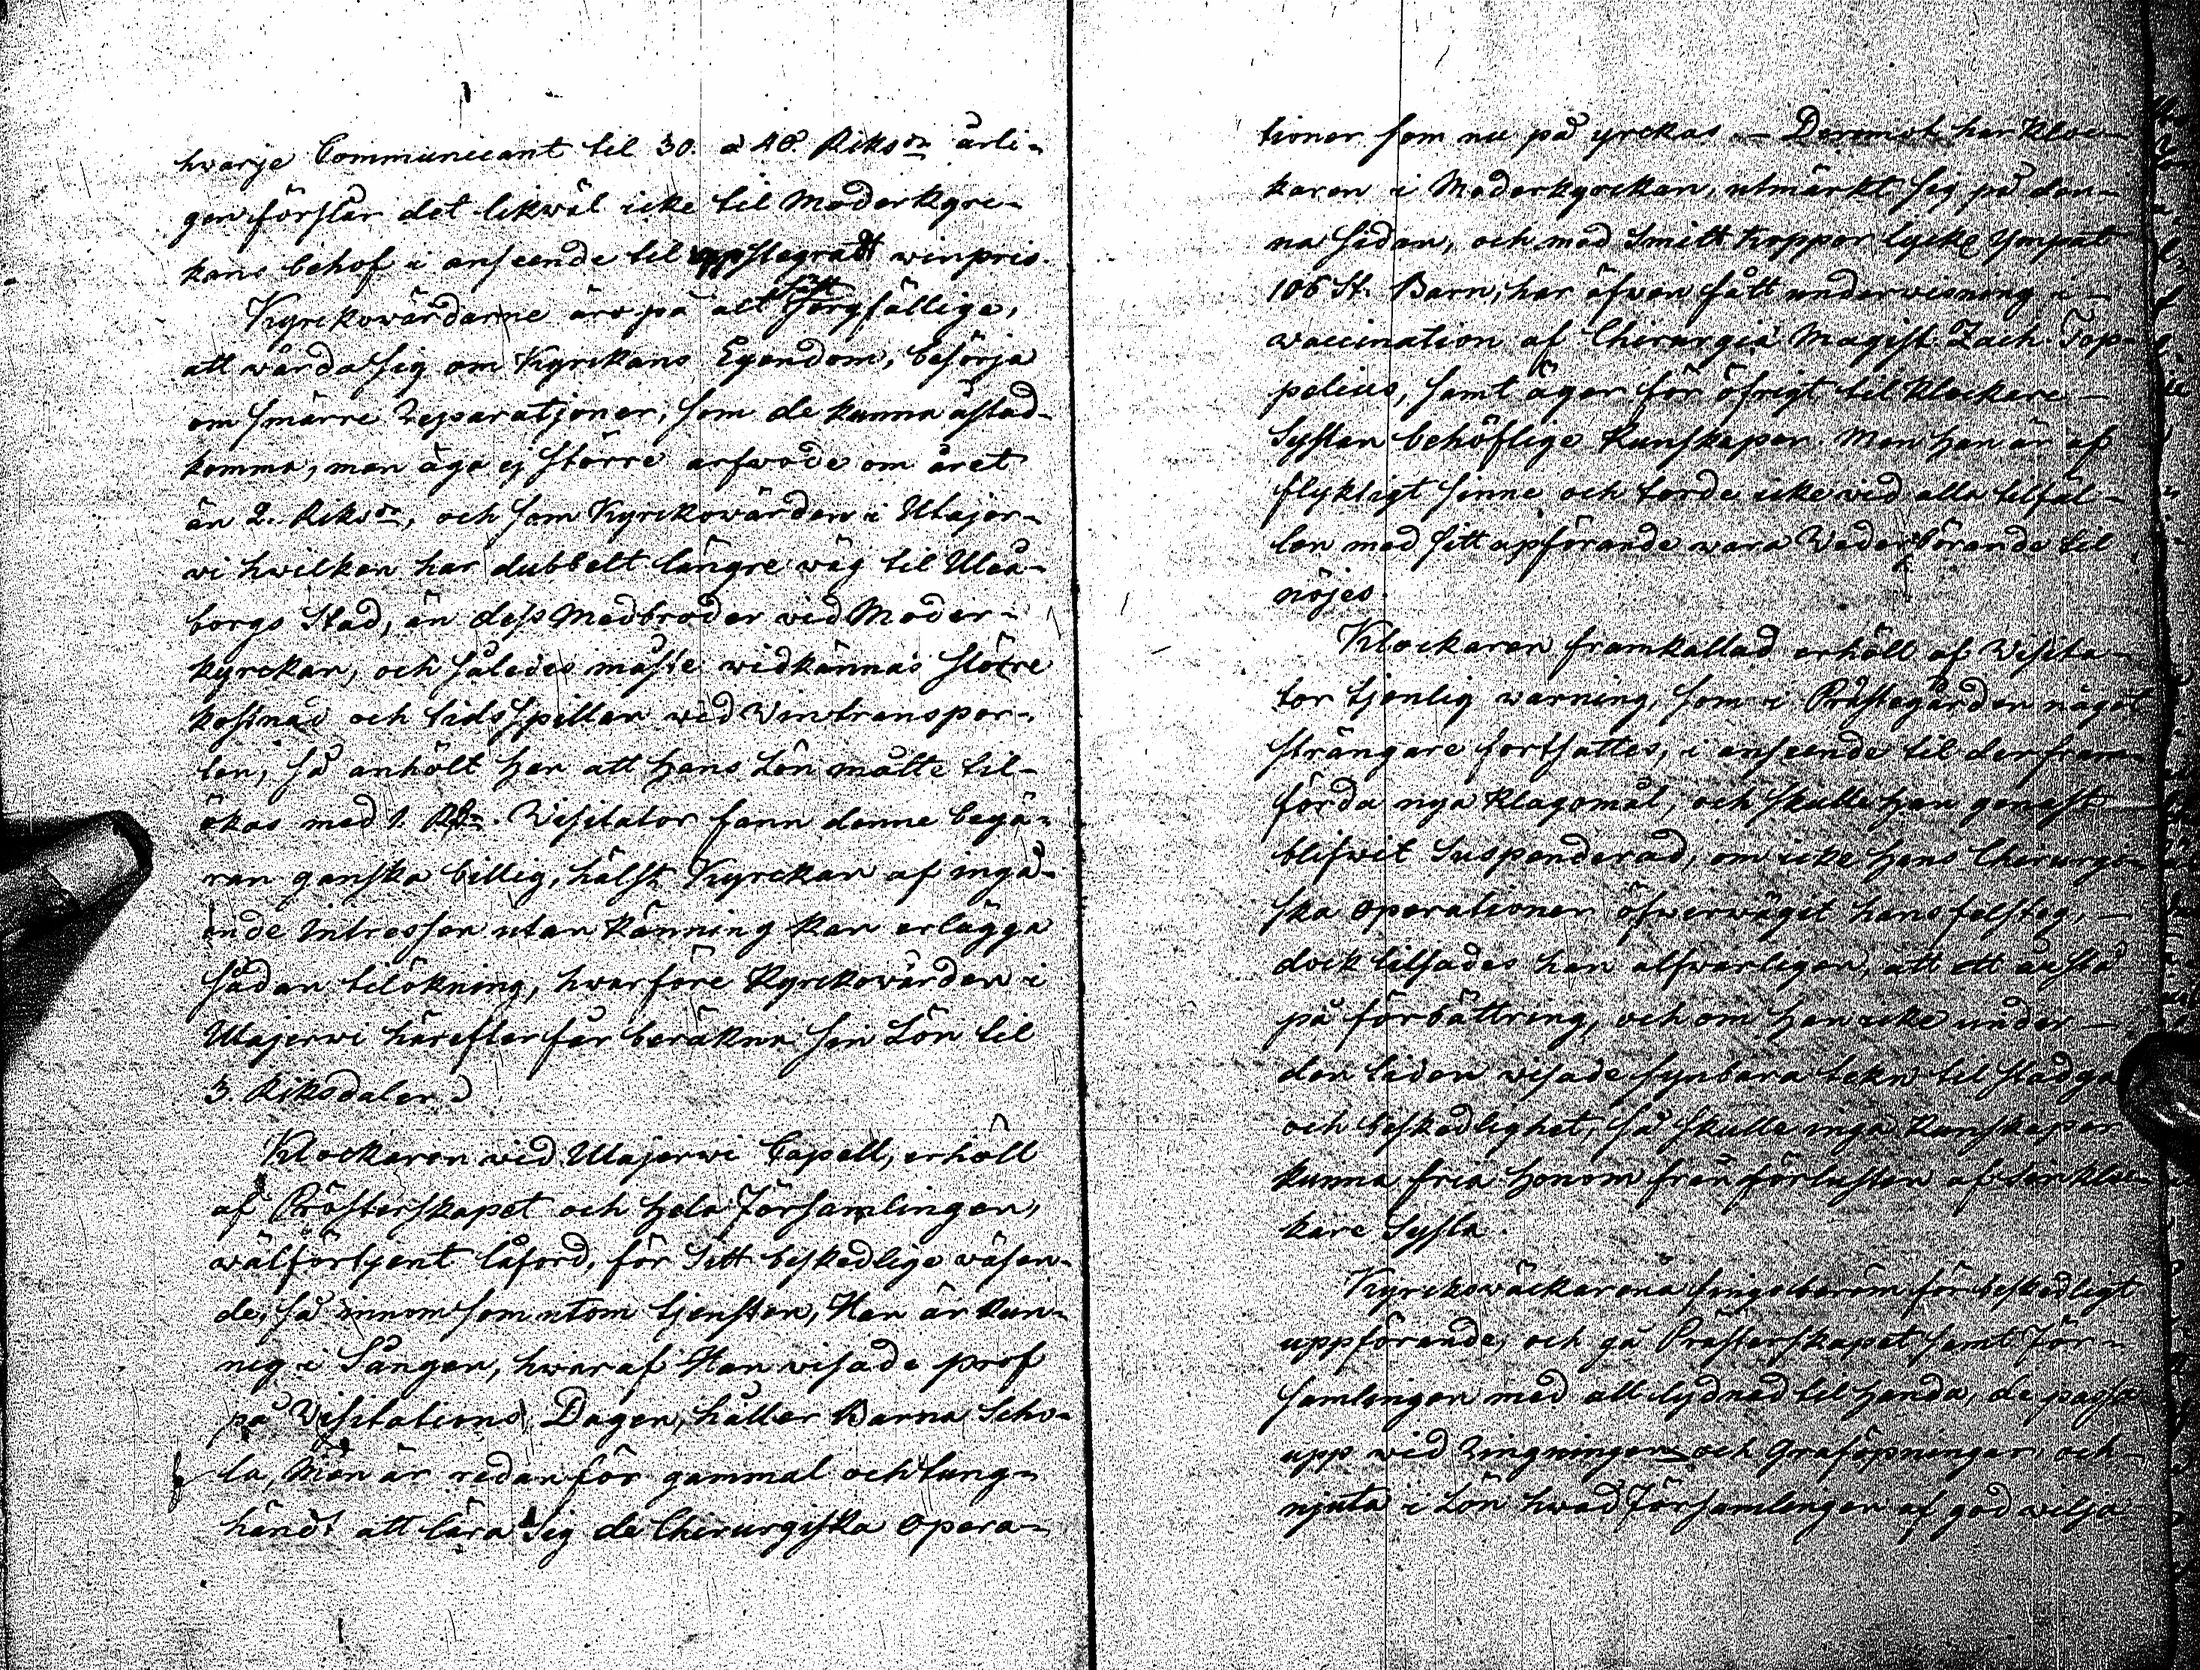 hwarje Communicant til 30. a 40 Riksdr årli-
gen förslår det likwäl icke til Moderkyrc-
kans behof i anseende til uppstegradt winpris.
Kyrckowärdarne äro på alt sätt sorgfällige,
att wårda sig om Kyrckans Egendom, besörja
om smärre Reparatjoner, som de kunna åstad-
komma, men äga ej större arfwode om året
än 2. Riksdr, och som Kyrckowärden i Utajer-
wi hwilken har dubbelt längre wäg til Uleå-
borgs Stad, än dess Medbroder wid Moder-
kyrckan, och således måste widkännas större
kostnad och tidsspillan wid Wintranspor-
ten, så anhölt han att hans Lön måtte til-
ökas med 1. Rdr. Visitator fann denne begä-
ran ganska billig, hälst Kyrckan af ingå-
ende Intressen utan känning kan erlägga
sådan tilökning, hwarföre Kyrckowärden i
Utajerwi härefter får beräkna sin Lön til
3 Riksdaler.
Klockaren wid Utajerwi Capell, erhöll
af Prästerskapet och hela Församlingen,
wälförtjent låford, för Sitt beskedlige wäsen-
de, så innom som utom tjensten, Han är kun-
nig i Sången, hwaraf Han wisade prof
på Visitations Dagen, håller Barna Scho-
la, Men är redan för gammal och tung-
händt att lära Sig de Chirurgiska Opera-
tioner som nu på yrckas. – Deremot har Kloc-
karen i Moderkyrckan, utmärkt sig på den-
na sidan, och med Smitt koppor lycke Ympat
106 St. Barn, har äfwen fått underwisning i
waccination af Chirurgiæ Magist. Zach. Top-
pelius, samt äger för öfrigt til klockare
Sysslan behöflige Kunskaper. Men han är af
flyktigt sinne och torde icke vid alla tilfäl-
len med sitt upförande wara Wederbörande til
nöjes.
Klockaren framkallad erhöll af Visita-
tor tjenlig warning, som i Prästegården något
strängare fortsattes, i anseende til der fram-
förda nya Klagomål, och skulle han genast
blifwit Suspenderad, om icke hans Chirurgi-
ska Operationer öfwerwägit hans felsteg, –
dock tilsades han alfwarligen, att ett år stå
på förbättring, och om han icke under –
den tiden wisade synbara tekn til stadga
och beskedlighet, så skulle inga Kunskaper
kunna fria honom från förlusten af sin kloc-
kare Syssla.
Kyrckowäckarena singo beröm för beskedligt
uppförande, och gå Prästerskapet samt För-
samlingen med all lydnad til handa, de passa
upp wid Ringningen och Graföpningar, och
njuta i Lön hwad Församlingen af god wilja